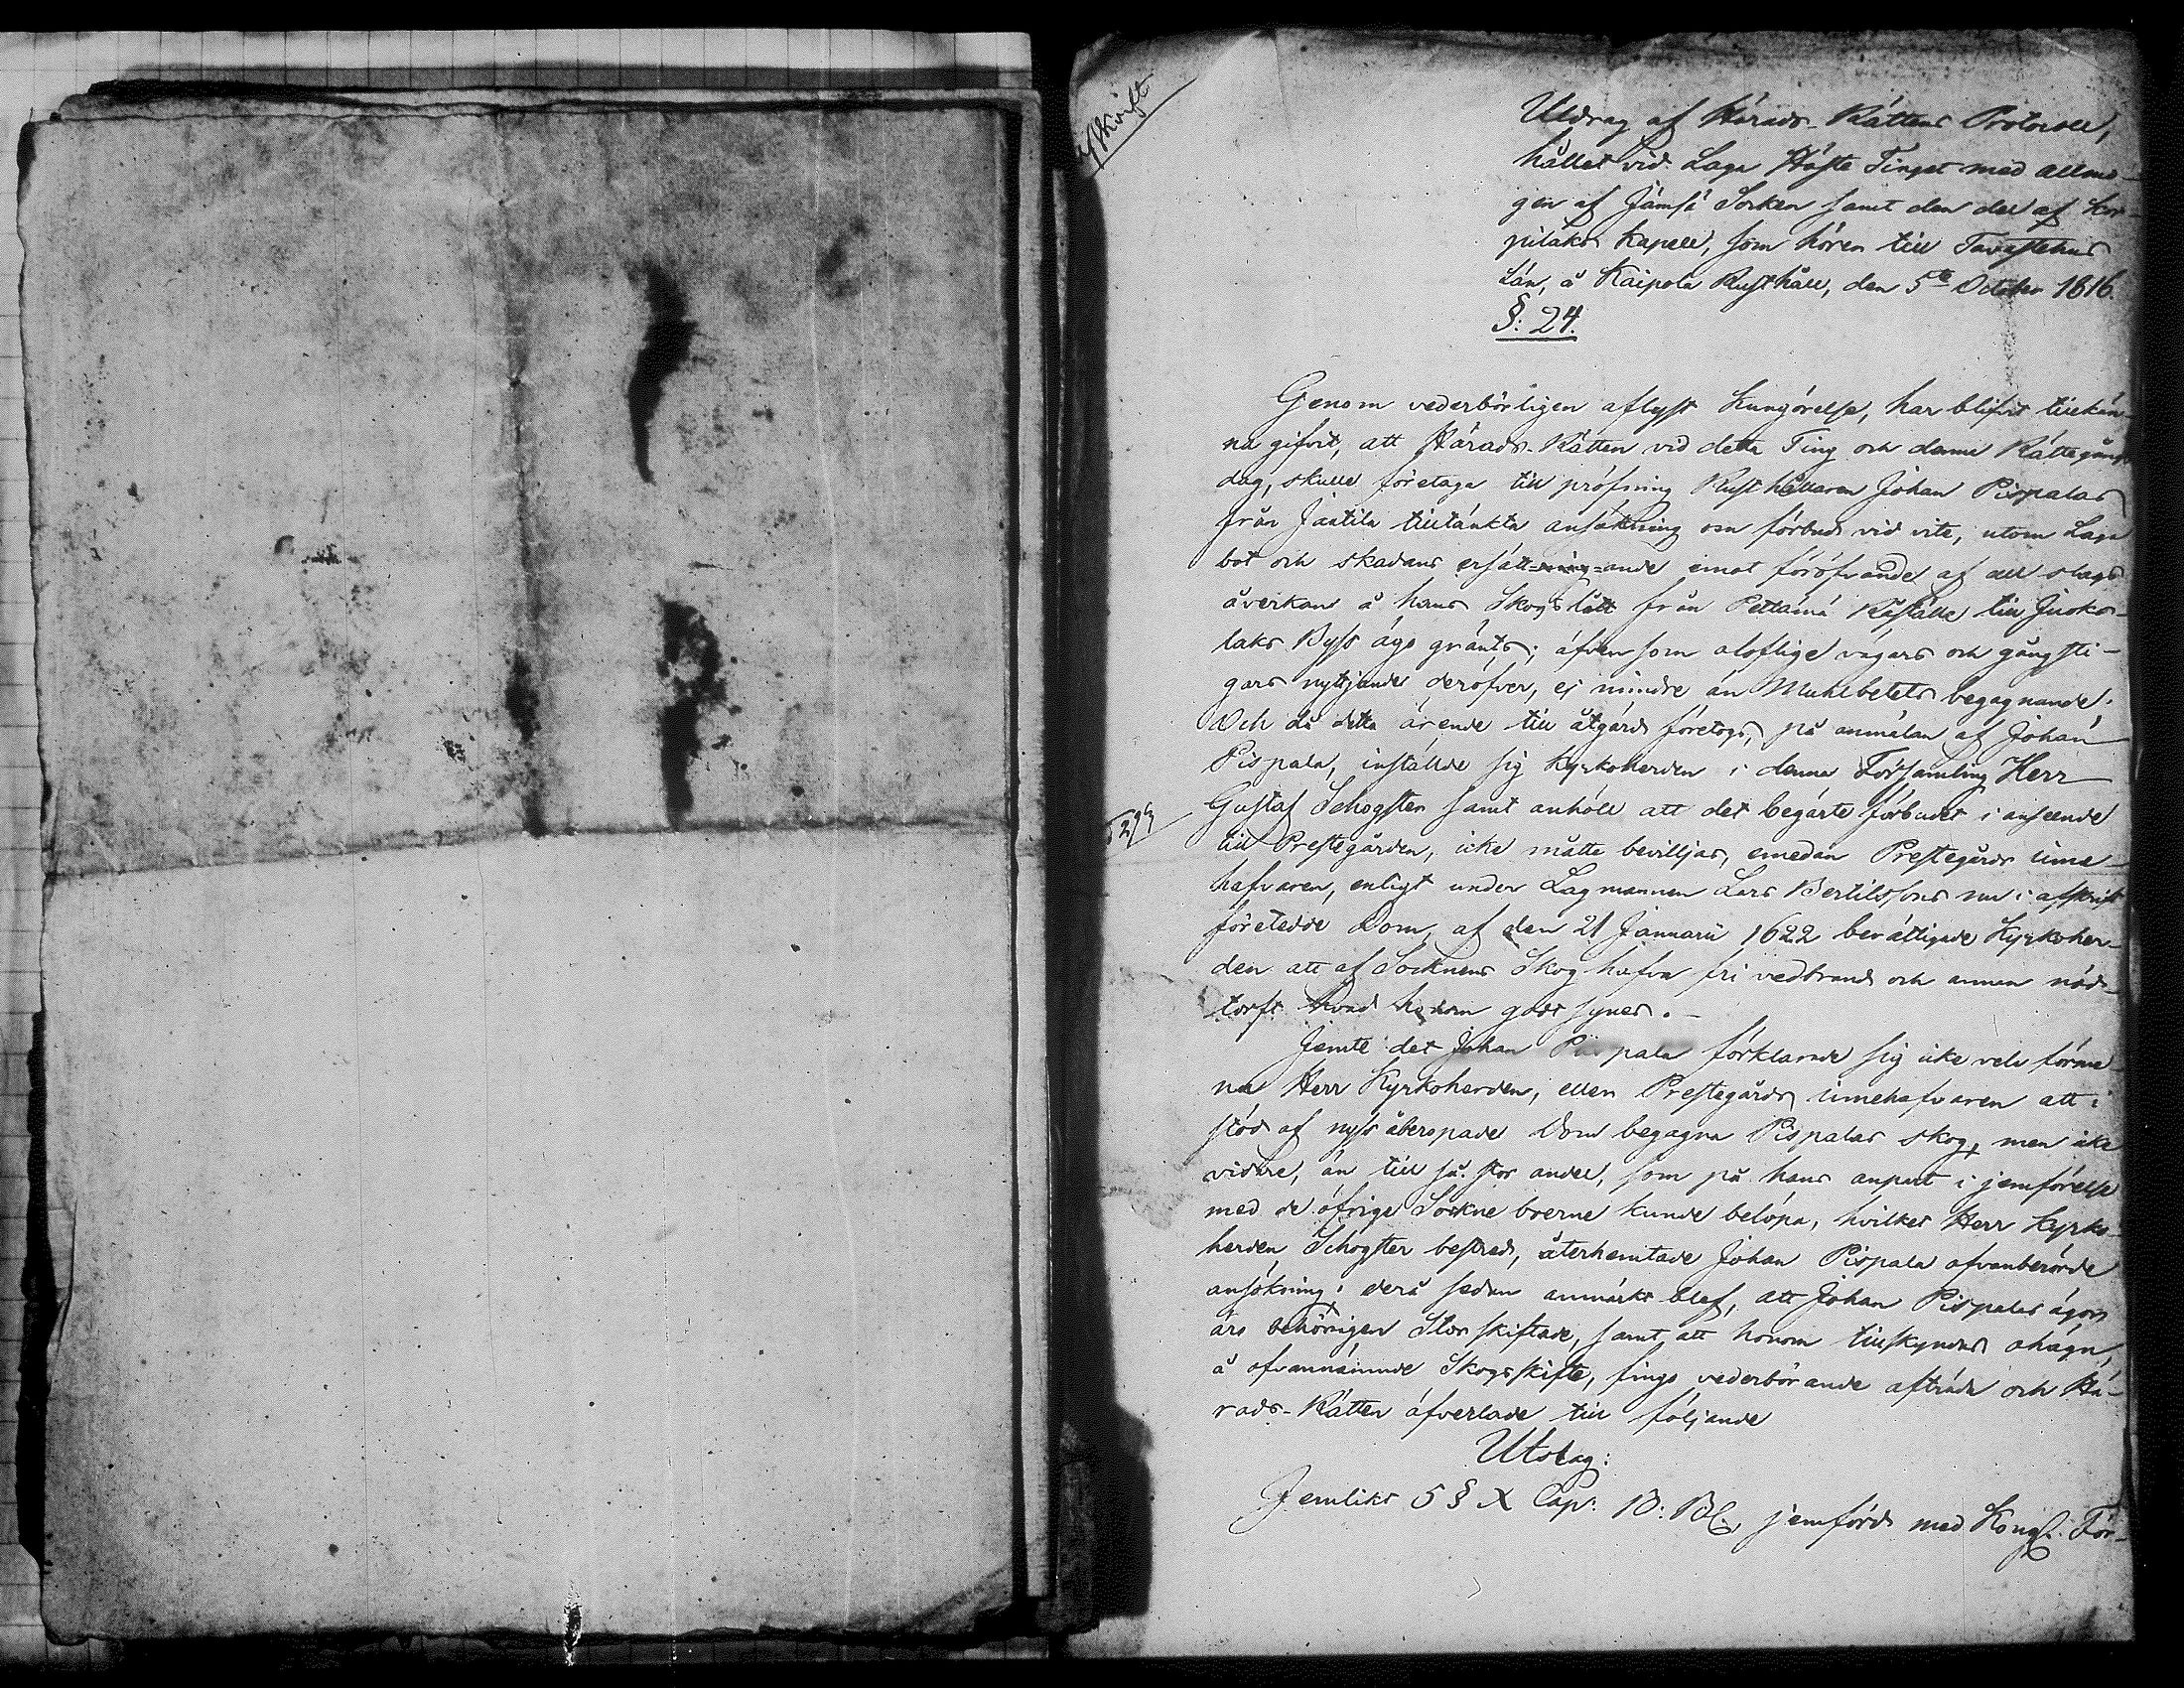 afskrift
Utdrag af Härads-Rättens Protocoll,
hållet vid Laga Höste Tinget med allmo-
gen af Jämsä Socken samt den del af Kor-
pilaks Kapell, som hörer till Tavastehus
Län, å Kaipola Rusthåll, den 5te October 1816.
§: 24.
Genom vederbörligen aflyst Kungörelse, har blifvit tillkän-
na gifvit, att Härads-Rätten vid detta Ting och denna Rättegångs
dag, skulle företaga till pröfning Rusthållaren Johan Pispalas
från Jaatila tilltänkta ansökning om förbud vid vite, utom Laga
bot och skadans ersättande emot föröfvande af all slags
åverkan å hans Skogslått från Pettämä Råställe till Juoks-
laks Byss ägo gränts; äfvensom oloflige vägars och gångsti-
gars nyttjande deröfver, ej mindre än Muhlbetets begagnande.
Och då detta ärende till åtgärd företogs, på anmälan af Johan
Pispala, inställde sig Kyrkoherden i denna Församling Herr
Gustaf Schogster samt anhöll att det begärte förbudet i anseende
till Prestegården, icke måtte bevilljas, emedan Prestegårds inne-
hafvaren, enligt under Lagmannen Lars Bertilssons nu i afskrift
företedde Dom, af den 21 Januarii 1622 berättigade Kyrkoher-
den att af Socknens Skog hafva fri vedbrand och annan nöd-
torft hvad honom godt synes.-
Jemte det Johan Pispala förklarade sig icke vela förme-
na Herr Kyrkoherden, eller Prestegårds innehafvaren att i
stöd af nyss åberopade Dom begagna Pispalas skog, men icke
vidare, än till så stor andel, som på hans anpart i jemförelse
med de öfrige Sockne boerne kunde belöpa, hvilket Herr Kyrko-
herden Schogster bestred, återhemtade Johan Pispala ofvanberörde
ansökning; derå sedan anmärkt blef, att Johan Pispalas ägor
äro behörigen Storskiftade, samt att honom tillskyndas ohägn,
å ofvannämnde Skogsskifte, fingo vederbörande afträda och Hä-
rads-Rätten öfverlade till följande
Utslag:
Jemlikt 5 § X Cap: B: B., jemförd med Kongl. För-